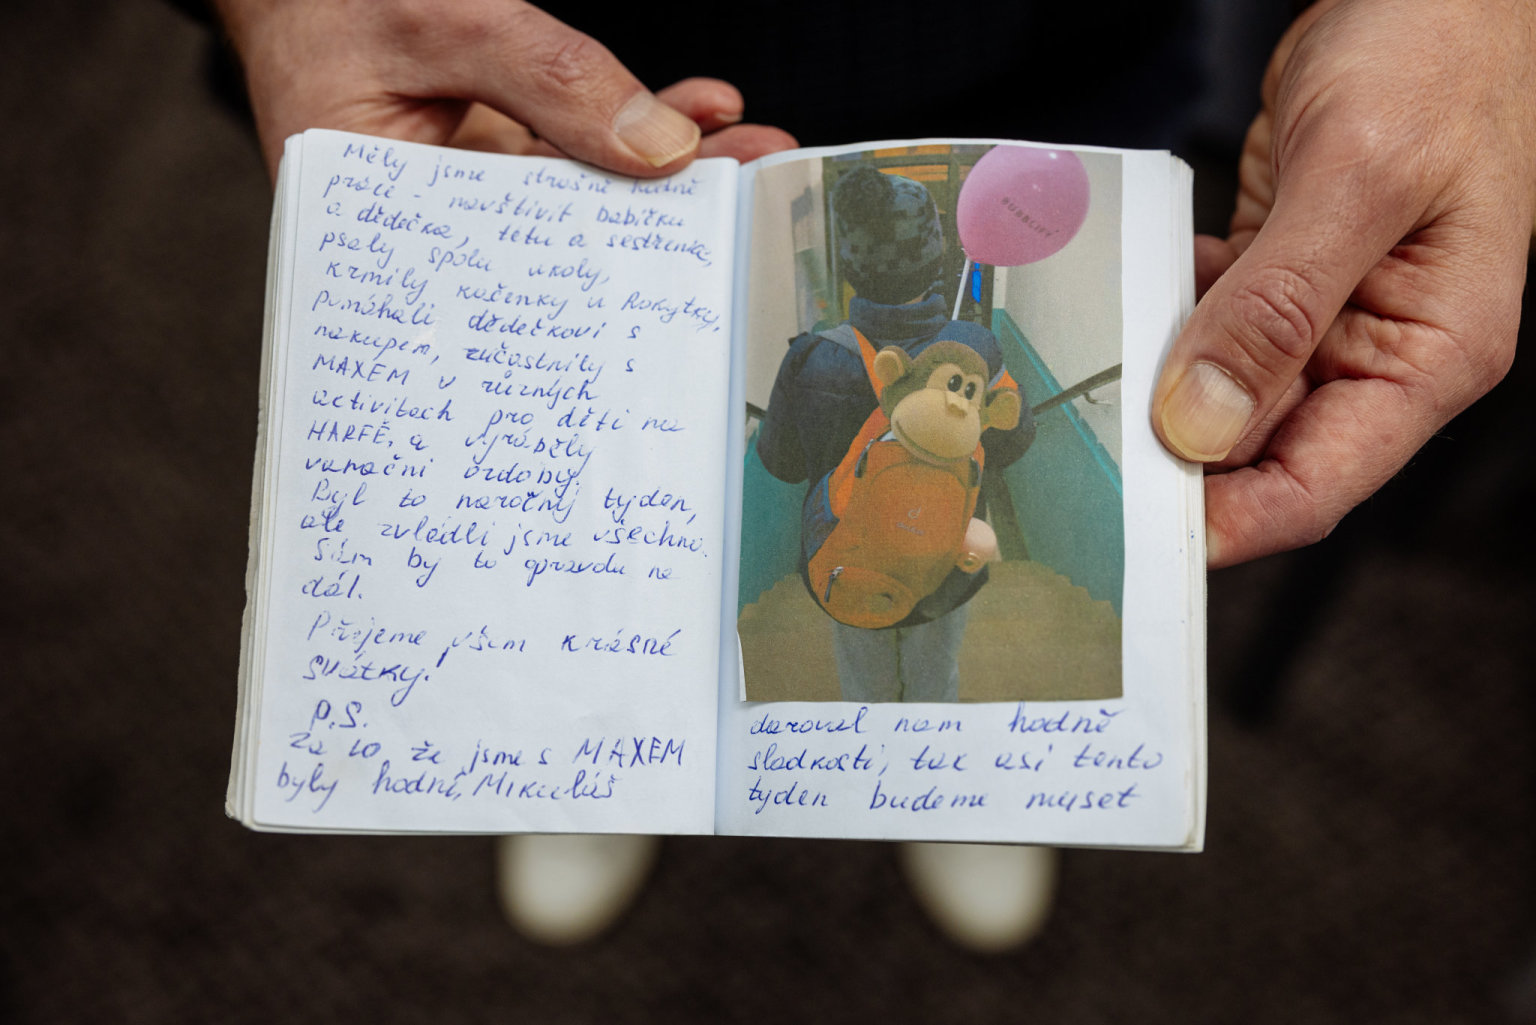 Měly jsme strašně hodně
práce - navštívit babičku
a dědečka, tetu a sestřenice,
psaly spolu úkoly,
krmily kačenky u Rokytky,
pomáhali dědečkovi s
nákupem, zúčastnily s
MAXEM v různých
activitách pro děti na
HARFĚ, a vyráběly
vánoční ozdoby.
Byl to náročný týden,
ale zvládli jsme všechno.
Sám by to opravdu ne
dál.
Přejeme všem krásné
svátky!
P.S.
Za to že jsme s MAXEM
byly hodní, Mikuláš
BUBBLIFY
daroval nam hodně
sladkosti, tak asi tento
tyden budeme muset